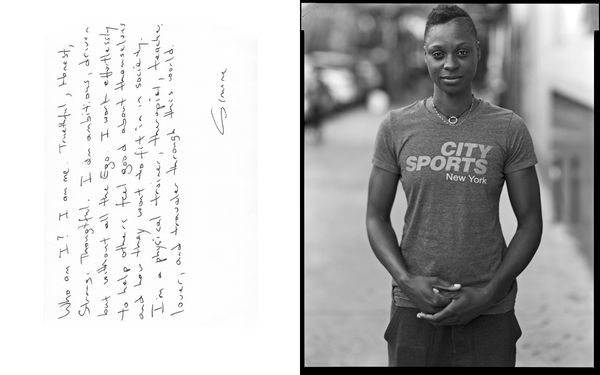 Who am I? I am me. Truthful, Honest,
Strong, Thoughtful. I am ambitious, driven
but without all the Ego. I work effortlessly
to help others feel good about themselves
and how they want to fit in in society.
I'm a physical trainer, therapist, teacher,
lover, and traveler through this world.
Simone
CITY
SPORTS
New York